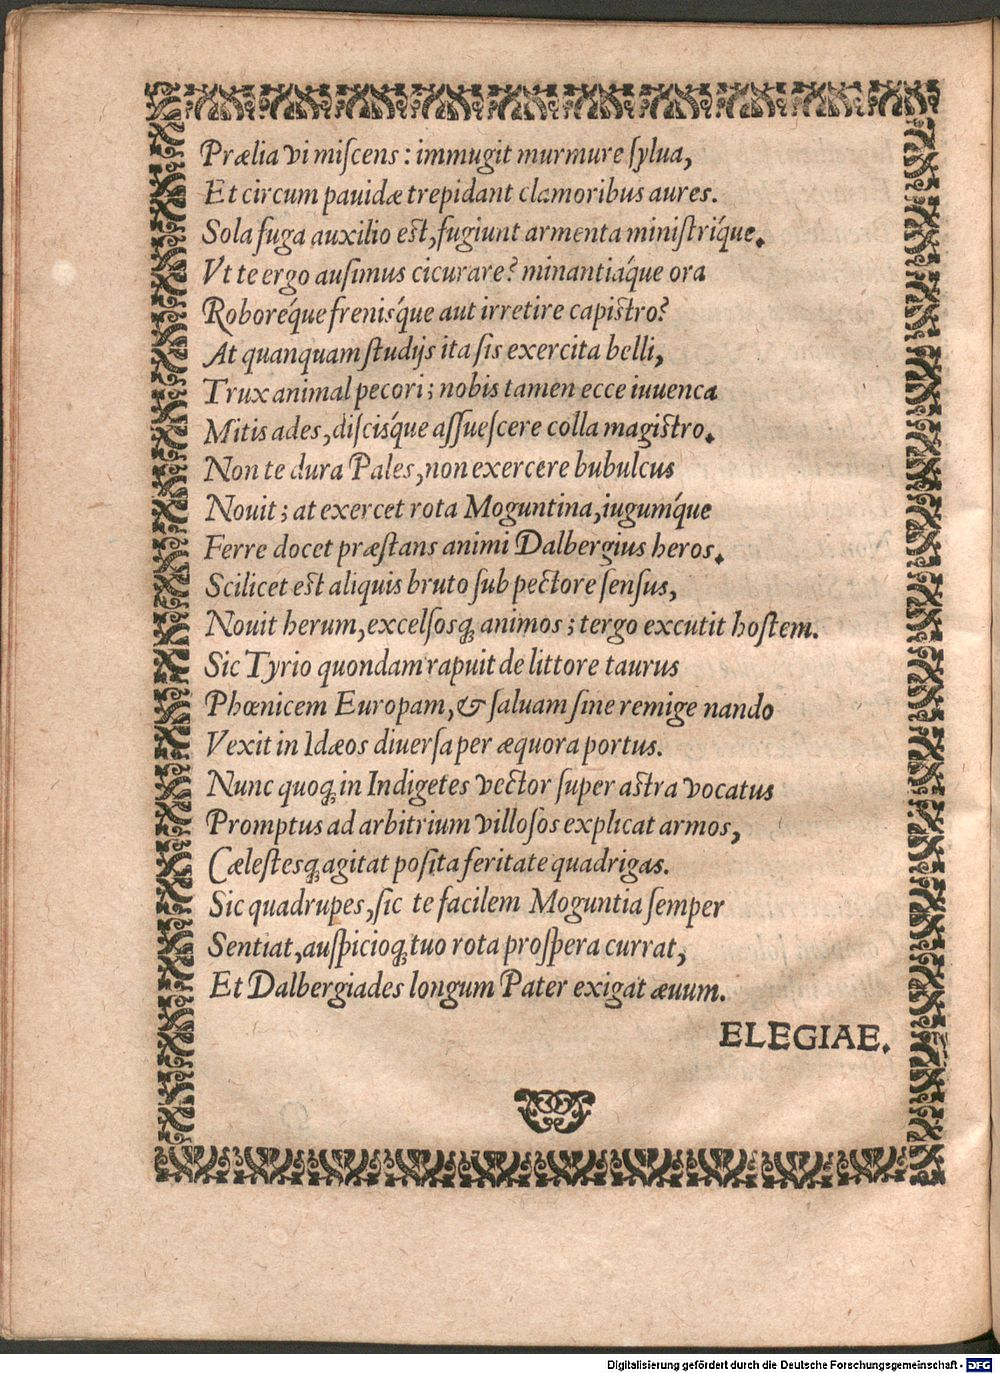 Prælia vi miſcens: immugit murmure ſylua,
Et circum pauidæ trepidant clamoribus aures.
Sola fuga auxilio est, fugiunt armenta miniſtriq́ue.
Vt te ergo auſimus cicurare? minantiaq́ue ora
Roboreq́ue freniśque aut irretire capistro?
At quanquam ſtudijs ita ſis exercita belli,
Trux animal pecori; nobis tamen ecce iuuenca
Mitis ades, diſciśque aſſueſcere colla magistro.
Non te dura Pales, non exercere bubulcus
Nouit; at exercet rota Moguntina, iugumq́ue
Ferre docet præſtans animi Dalbergius heros.
Scilicet est aliquis bruto ſub pectore ſenſus,
Nouit herum, excelſosq; animos; tergo excutit hoſtem.
Sic Tyrio quondam rapuit de littore taurus
Phœnicem Europam, & ſaluam ſine remige nando
Vexit in Idæos diuerſa per æquora portus.
Nunc quoq; in Indigetes vector ſuper astra vocatus
Promptus ad arbitrium villoſos explicat armos,
Cæleſtesq; agitat poſita feritate quadrigas.
Sic quadrupes, ſic te facilem Moguntia ſemper
Sentiat, auſpicioq; tuo rota proſpera currat,
Et Dalbergiades longum Pater exigat æuum.
ELEGIAE.
Digitalisierung gefördert durch die Deutsche Forschungsgemeinschaft - DFG